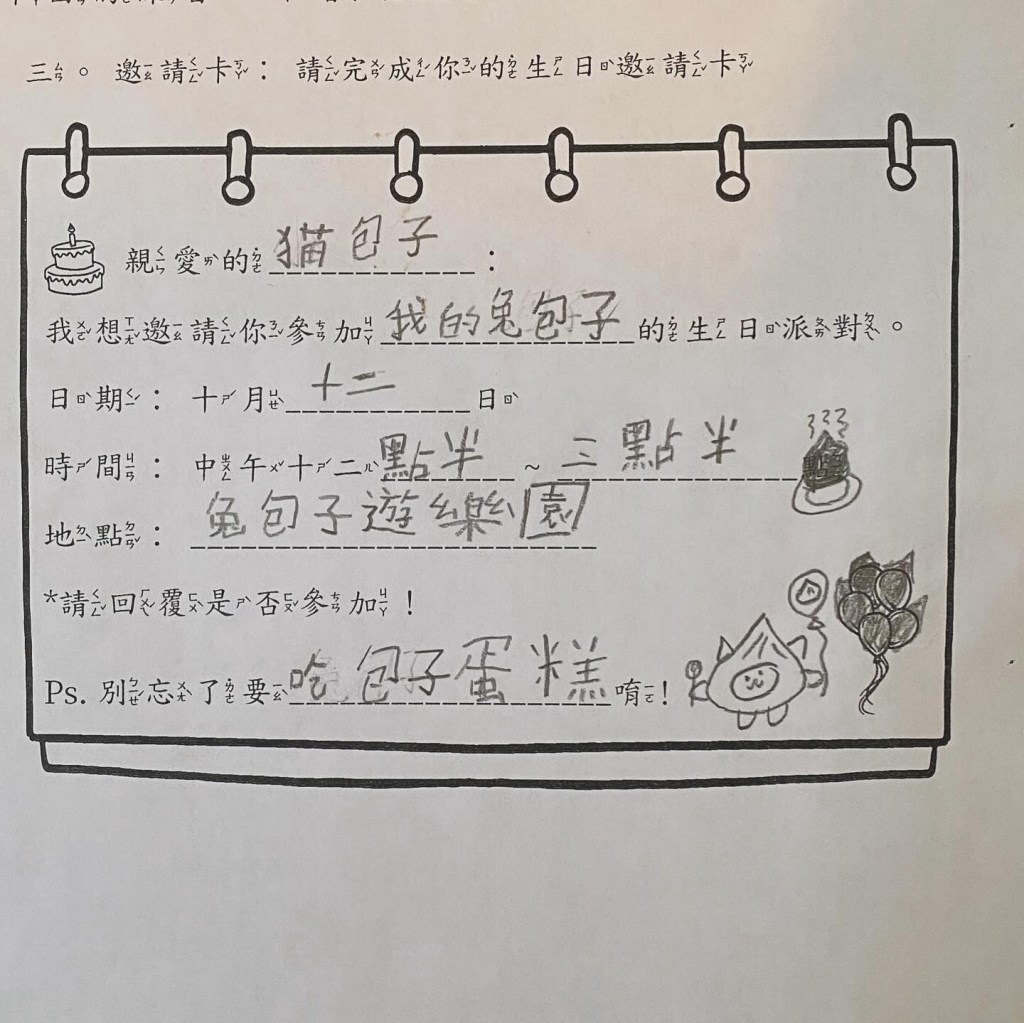 三。邀請卡：請完成你的生日邀請卡
親愛的猫包子：
我想邀請你參加我的兔包子的生日派對。
日期：十月十二日
時間：中午十二點半～三點半
地點：兔包子遊樂園
*請回覆是否參加！
Ps. 別忘了要吃包子蛋糕唷！